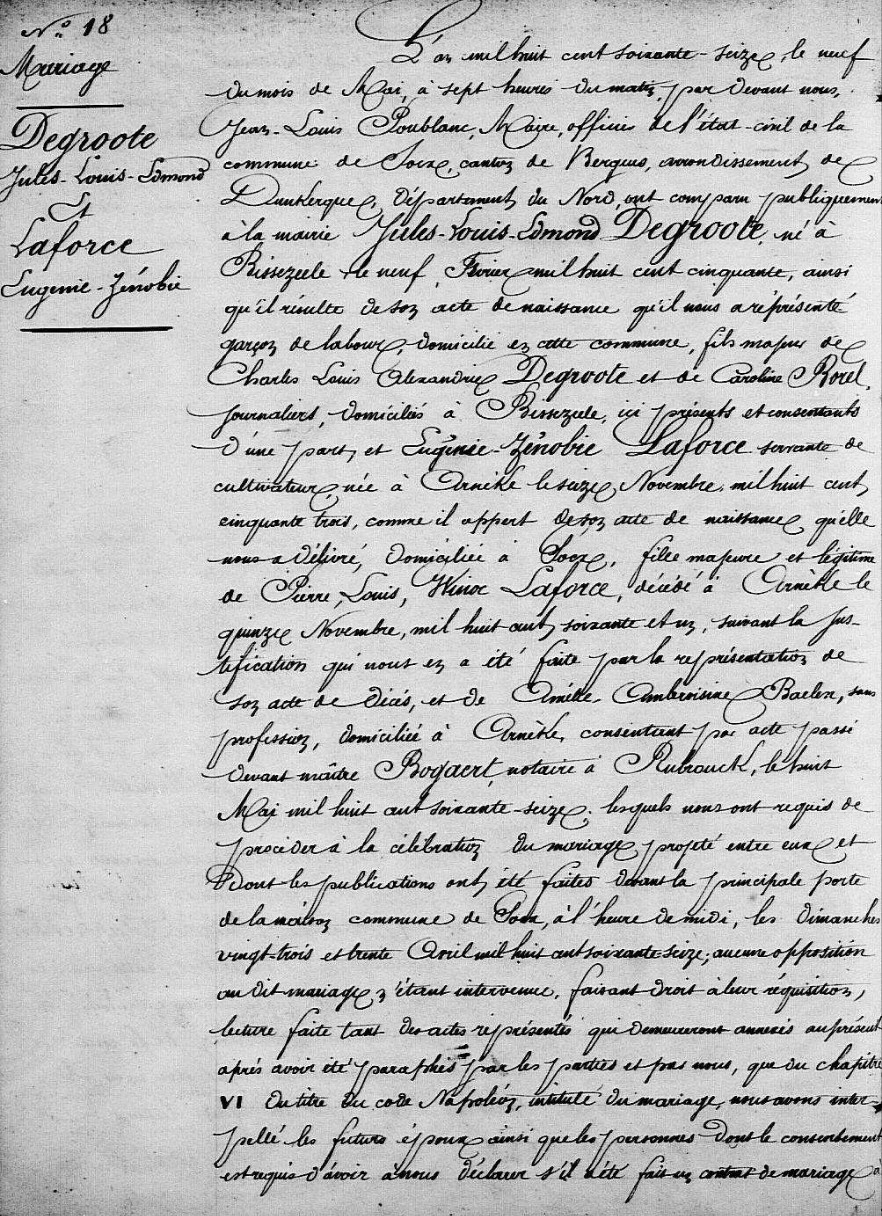 N.º 18
Mariage
Degroote
Jules-Louis-Edmond
Et
Laforce
Eugenie-Zénobie
L'an mil huit cent soixante-seize, le neuf
du mois de Mai, à sept heures du matin, par devant nous,
Jean-Louis Poublanc, Maire, officier de l'état-civil de la
commune de Socx, canton de Bergues, arrondissement de
Dunkerque, département du Nord, ont comparu publiquement
à la mairie Jules-Louis-Edmond Degroote, né à
Bissezeele le neuf Février mil huit cent cinquante, ainsi
qu'il résulte de son acte de naissance qu'il nous a réprésenté
garçon de labour, domicilié en cette commune, fils majeur de
Charles Louis Alexandre Degroote et de Caroline Rorel,
Journaliers, domiciliés à Bissezeele, ici présents et consentants
d'une part, et Eugénie-Zénobie Laforce servante de
cultivateur, née à Arnèke le seize Novembre, mil huit cent
cinquante trois, comme il appert de son acte de naissance qu'elle
nous a délivré, domiciliée à Socx, fille majeure et légitime
de Pierre, Louis, Winoc Laforce, décédé à Arnèke le
quinze Novembre, mil huit cent soixante et un, suivant la jus-
tification qui nous en a été faite par la représentation de
son acte de décès, et de Amélie Ambroisine Baelen, sans
profession, domiciliée à Arnèke, consentant par acte passé
devant maître Bogaert, notaire à Rubrouck, le huit
Mai mil huit cent soixante-seize; lesquels nous ont requis de
procéder à la célébration du mariage projeté entre eux et
dont les publications ont été faites devant la principale porte
de la maison commune de Socx, à l'heure de midi, les dimanches
vingt-trois et trente Avril mil huit cent soixante seize; aucune opposition
au dit mariage n'étant intervenue, faisant droit à leur réquisition,
lecture faite tant des actes représentés qui demeureront annexés au présent
après avoir été paraphés par les parties et par nous, que du chapitre
VI du titre du code Napoléon, intitulé du mariage, nous avons inter-
pellé les futurs époux ainsi que les personnes dont le consentement
est requis d'avoir à nous déclarer s'il a été fait un contrat de mariage à